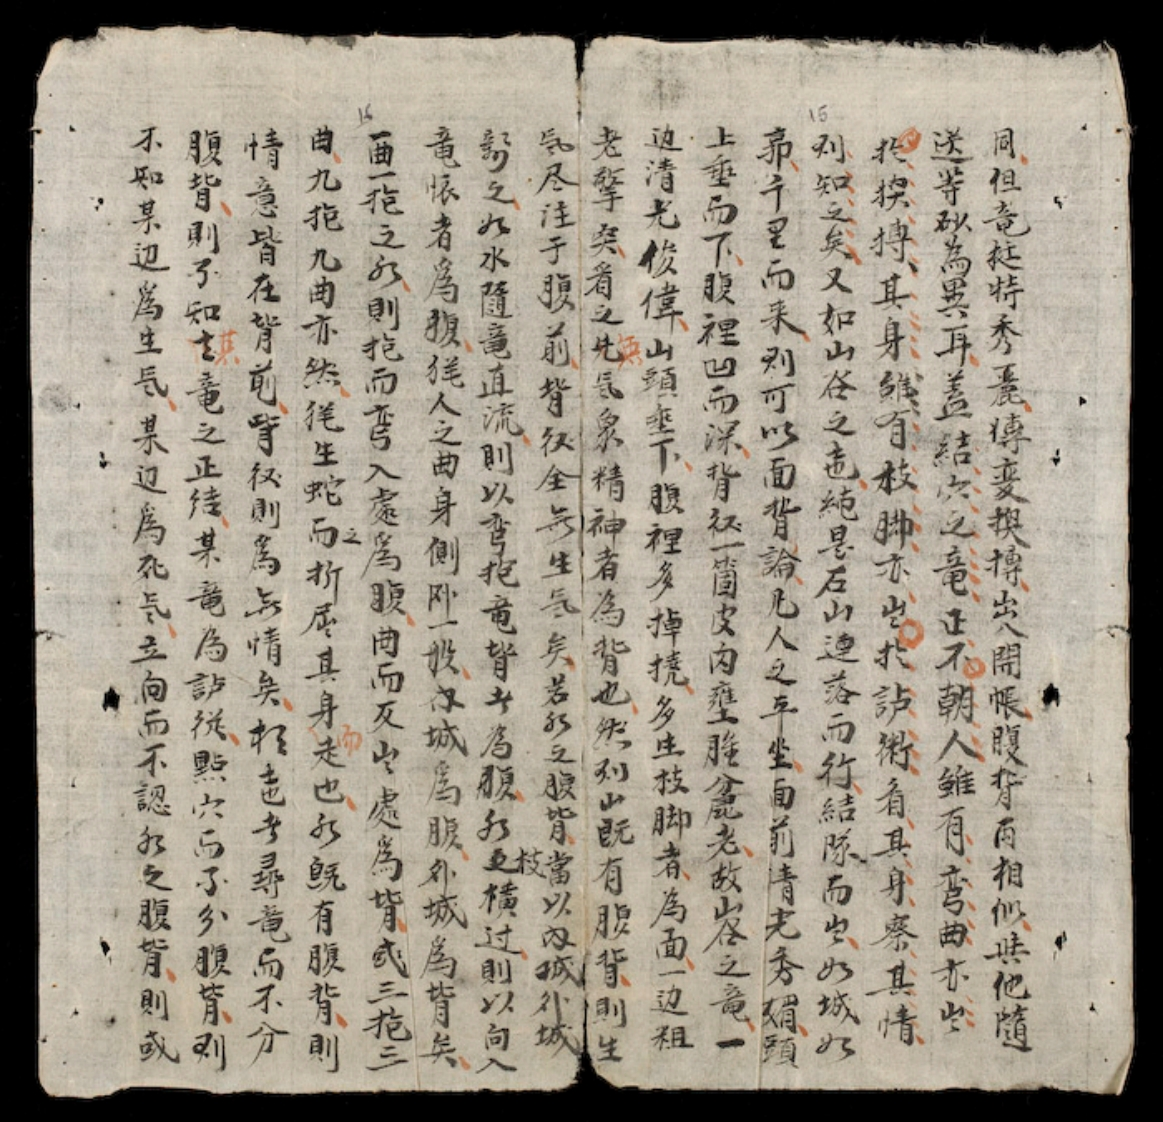 同但竜挺特秀麗傳变換摶出入開帳腹背两相似与他隨
送等砂為異耳盖結穴之竜正不朝人雖有弯曲亦出
於換摶其身雖有枝脚亦出於訴術看其身察其情
刘知之矣又如山谷之竜純是石山連落而行結隊而出如城如
郭千里而来刘可以面背論凡人之平坐面前清光秀媚頭
上垂而下腹裡凹而深背后一箇皮肉壅腫麄老故山谷之竜一
边清光俊偉山頭垂下腹裡多掉撓多生枝脚者為面一边粗
老擎突看之先無气象精神者為背也然刘山既有腹背則生
气尽注于腹前背后全無生气矣若水之腹背當以内城外城
論之水隨竜直流則以弯抱竜背者為腹水枝横过則以向入
竜怅者爲腹猶人之曲身側卧一般内城爲腹外城爲背矣
一曲一抱之水則抱而弯入處爲腹曲而反出處爲背或三抱三
曲九抱九曲亦然猶生蛇而折屈其身之而走也水既有腹背則
情意皆在背前背后則爲無情矣相竜者尋竜而不分
腹背則不知其竜之正结某竜為訴從點穴而不分腹背刘
不知某边爲生气某边爲死气立向而不認水之腹背則或